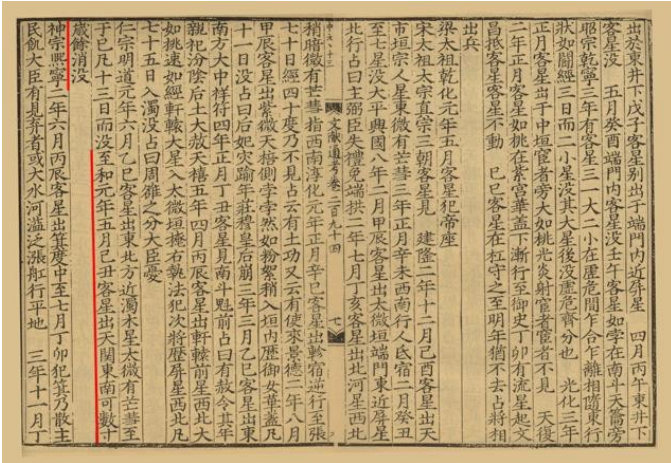 出於東井下戊子客星別出于端門內近屏星　四月丙午東井下
客星没　五月癸酉端門內客星没壬午客星如孛在南斗天籥旁
昭宗乾寧三年有客星三一大二小在虛危間乍合乍離相隨東行
狀如鬬經三日而二小星没其大星後没虛危齊分也　光化三年
正月客星出于中垣宦者旁大如桃光炎射宦者宦者不見　天復
二年正月客星如桃在紫宮華蓋下漸行至御史丁卯有流星起文
昌抵客星客星不動　己巳客星在杠守之至明年猶不去占將相
出兵
梁太祖乾化元年五月客星犯帝座
宋太祖太宗真宗三朝客星見　建隆二年十二月己酉客星出天
市垣宗人星東微有芒彗三年正月辛未西南行入氐宿二月癸丑
至七星没太平興國八年二月甲辰客星出太微垣端門東近屏星
北行占曰主弼臣失禮免端拱二年七月丁亥客星出北河星西北
文獻通考卷二百九十四　七
稍暗微有芒彗指西南淳化元年正月辛巳客星出軫宿逆行至張
七十日經四十度乃不見占云有土功又云有使來景德二年八月
甲辰客星出紫微天棓側孛孛然如粉絮稍入垣內歷御女華蓋凡
十一日没占曰后妃災踰年莊穆皇后崩三年三月乙巳客星出東
南方大中祥符四年正月丁丑客星見南斗魁前占曰有赦令其年
親祀汾陰后土大赦天禧五年四月丙辰客星出軒轅前星西北大
如桃速如經軒轅大星入太微垣掩右執法犯次將歷屏星西北凡
七十五日入濁没占曰周雒之分大臣憂
仁宗明道元年六月乙巳客星出東北方近濁木星太微有芒彗至
丁巳凡十三日而没至和元年五月己丑客星出天關東南可數寸
歲餘消没
神宗熙寧二年六月丙辰客星出箕度中至七月丁卯犯箕乃散主
民飢大臣有見棄者或大水河溢泛漲舡行平地　三年十一月丁